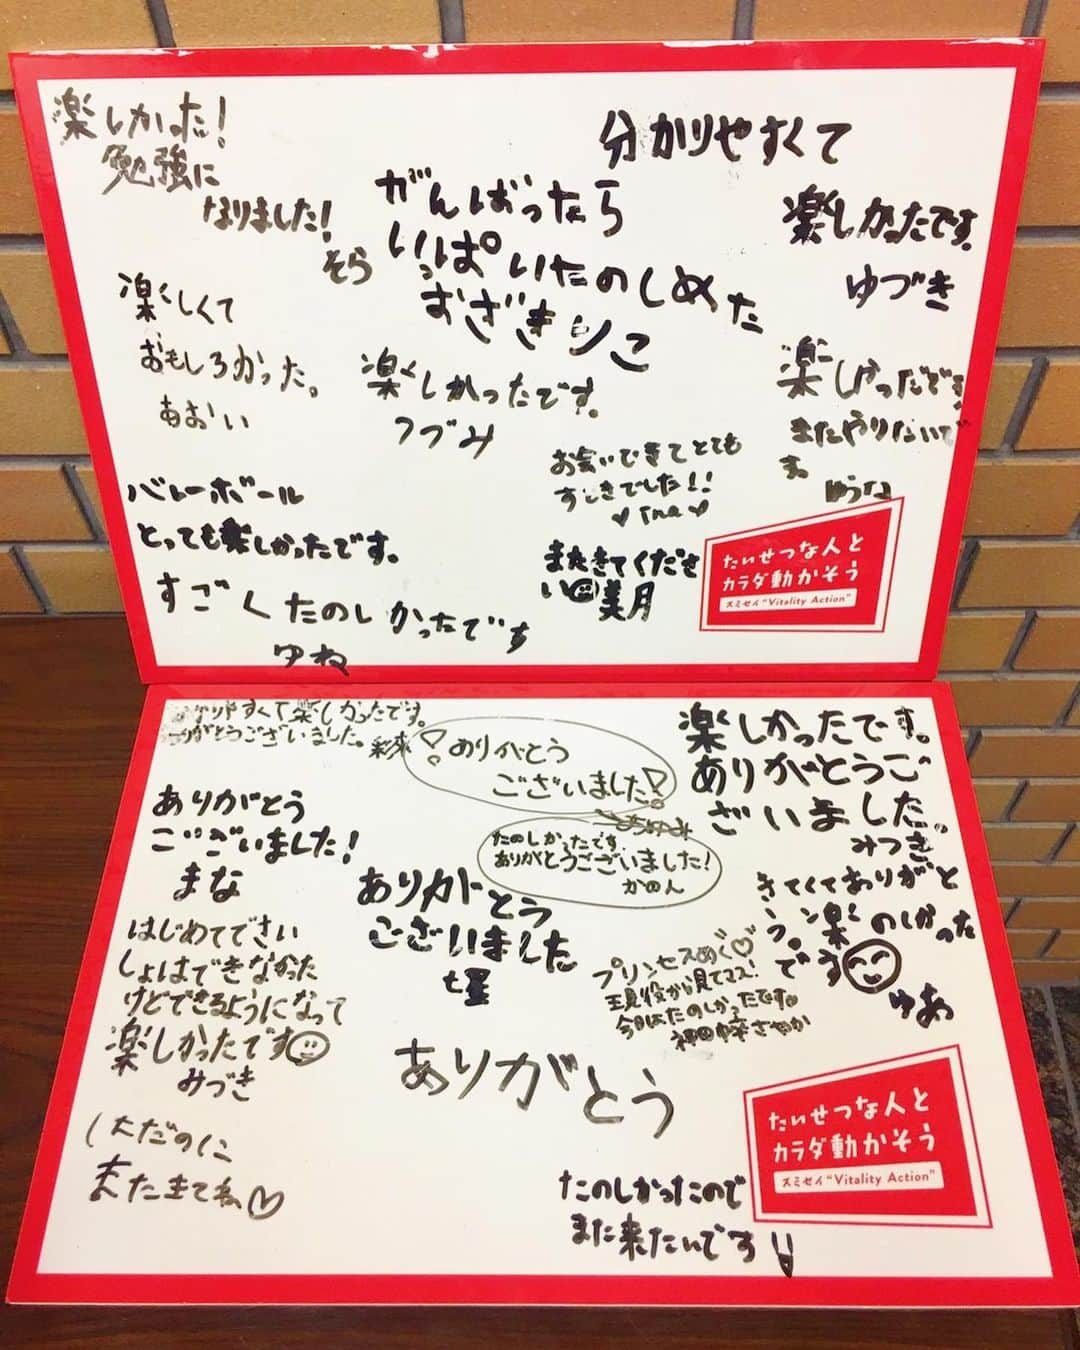 楽しかった!
勉強に
なりました!
そら
分かりやすくて
楽しかったです。
ゆづき
がんばったら
いっぱいたのしめた
おざきりこ
楽しくて
おもしろかった。
あおい
楽しかったです。
つづみ
楽しかったです。
またやりたいで
す。
ゆうな
お会いできてとても
すてきでした!!
バレーボール
とっても楽しかったです。
すごくたのしかったです
ゆね
またきてくださ
い
美月
たいせつな人と
カラダ動かそう
スミセイ“Vitality Action”
やすくて楽しかったです。
りがとうございました。
ありがとう
ございました!
たのしかったです。
ありがとうございました!
かのん
楽しかったです。
ありがとうご
ざいました。
みつき
ありがとう
ございました!
まな
ありがとう
ございました
七星
きてくてありがと
う。楽のしかった
です
ゆあ
はじめてでさい
しょはできなかった
けどできるようになって
楽しかったです
みづき
プリンセスめぐ♡
現役から見てマス!
今日はたのしかったです
さやか
ありがとう
またきてね♡
たのしかったので
また来たいです
たいせつな人と
カラダ動かそう
スミセイ“Vitality Action”